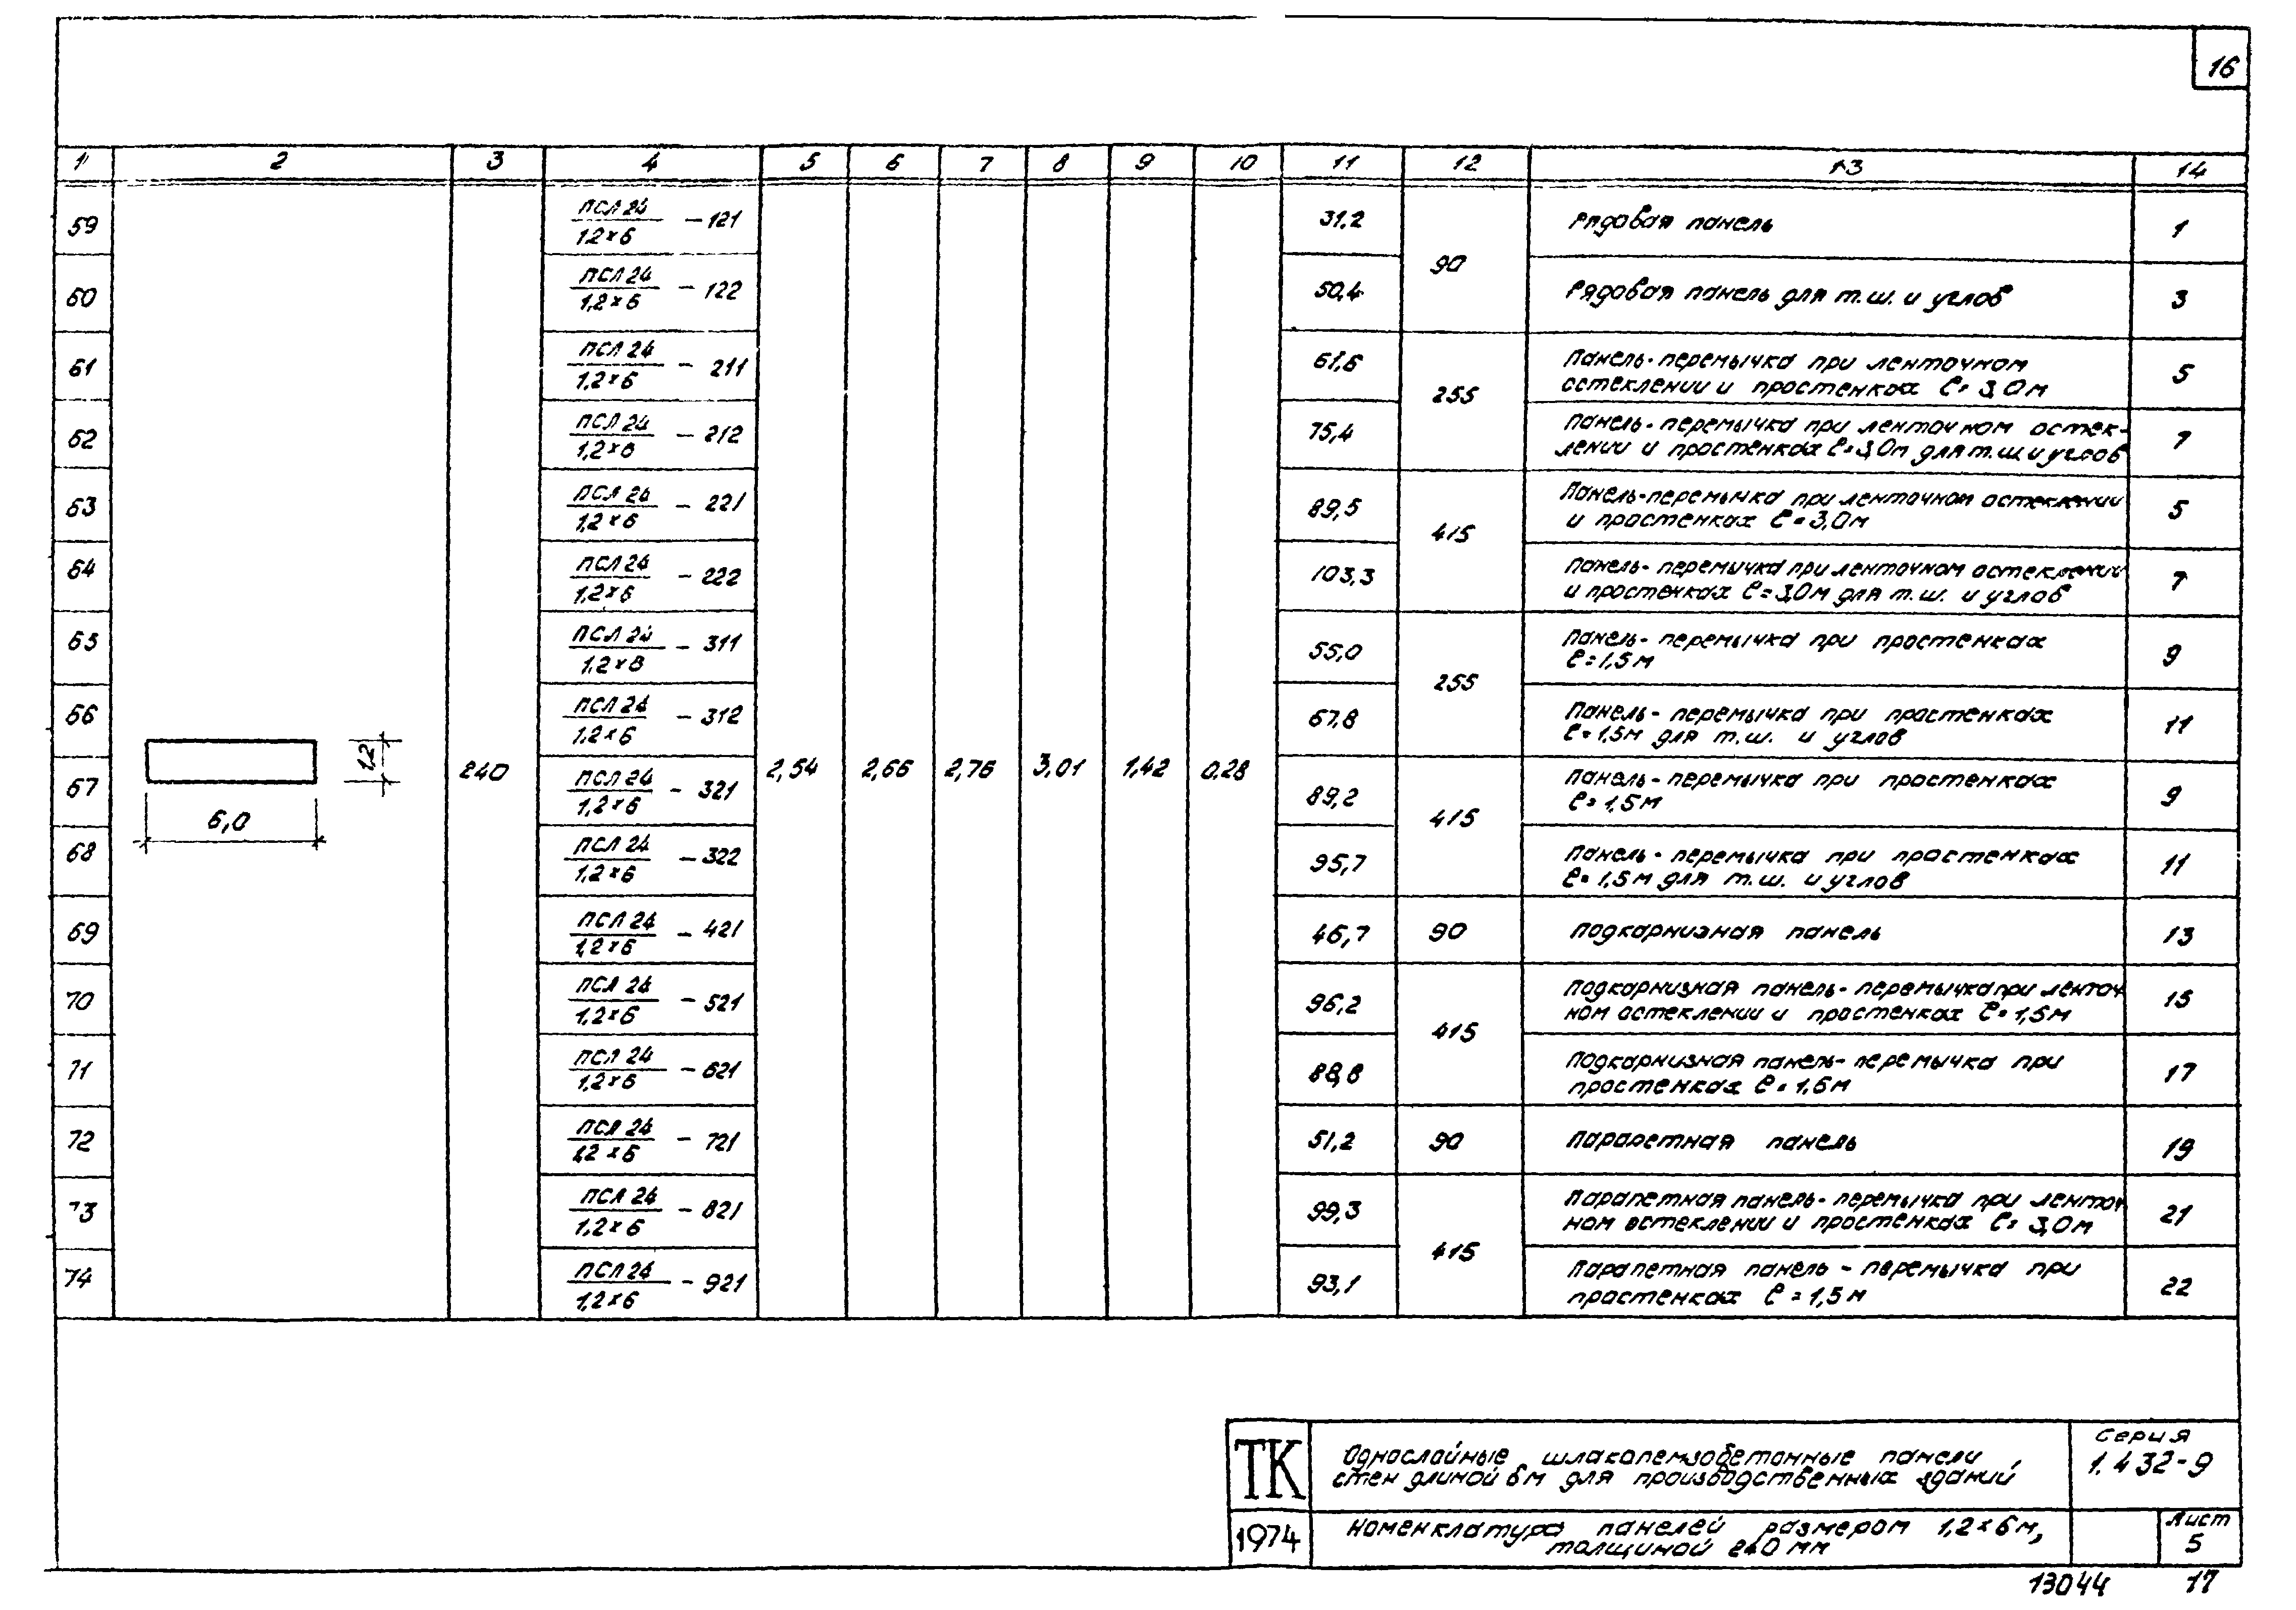 16
1 2 3 4 5 6 7 8 9 10 11 12 13 14
59 ПСЛ 24 / 1,2×6 – 121 31,2 90 Рядовая панель 1
60 ПСЛ 24 / 1,2×6 – 122 50,4 Рядовая панель для т.ш. и углов 3
61 ПСЛ 24 / 1,2×6 – 211 61,6 255 Панель-перемычка при ленточном
остеклении и простенках ℓ= 3,0м 5
62 ПСЛ 24 / 1,2×6 – 212 75,4 Панель-перемычка при ленточном остек-
лении и простенках ℓ=3,0м для т.ш и углов 7
63 ПСЛ 24 / 1,2×6 – 221 89,5 415 Панель-перемычка при ленточном остеклении
и простенках ℓ=3,0м 5
64 ПСЛ 24 / 1,2×6 – 222 103,3 Панель-перемычка при ленточном остеклении
и простенках ℓ=3,0м для т.ш. и углов 7
65 ПСЛ 24 / 1,2×6 – 311 55,0 255 Панель-перемычка при простенках
ℓ=1,5м 9
66 ПСЛ 24 / 1,2×6 – 312 67,8 Панель-перемычка при простенках
ℓ=1,5м для т.ш. и углов 11
1,2
6,0
240 2,54 2,66 2,76 3,01 1,42 0,28
67 ПСЛ 24 / 1,2×6 – 321 89,2 415 Панель-перемычка при простенках
ℓ=1,5м 9
68 ПСЛ 24 / 1,2×6 – 322 95,7 Панель-перемычка при простенках
ℓ=1,5м для т.ш. и углов 11
69 ПСЛ 24 / 1,2×6 – 421 46,7 90 Подкарнизная панель 13
70 ПСЛ 24 / 1,2×6 – 521 96,2 415 Подкарнизная панель-перемычка при ленточ
ном остеклении и простенках ℓ=1,5м 15
71 ПСЛ 24 / 1,2×6 – 621 88,8 Подкарнизная панель-перемычка при
простенках ℓ=1,5м 17
72 ПСЛ 24 / 1,2×6 – 721 51,2 90 Парапетная панель 19
73 ПСЛ 24 / 1,2×6 – 821 99,3 415 Парапетная панель-перемычка при ленточ
ном остеклении и простенках ℓ= 3,0м 21
74 ПСЛ 24 / 1,2×6 – 921 93,1 Парапетная панель – перемычка при
простенках ℓ=1,5м 22
ТК
Однослойные шлакопемзобетонные панели
стен длиной 6м для производственных зданий
Серия
1.432-9
1974
Номенклатура панелей размером 1,2×6м,
толщиной 240 мм
Лист
5
13044 17